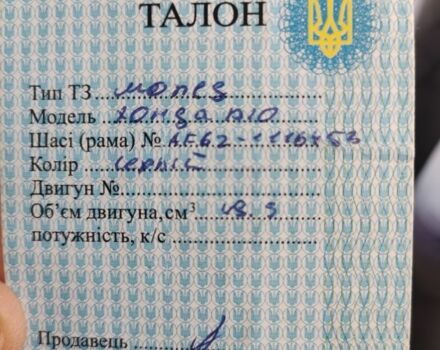 ТАЛОН
Тип ТЗ мопед
Модель Хонда Діо
Шасі (рама) № AF62-
Колір
Двигун №
Об'єм двигуна, см³ 49.9
потужність, к/с
Продавець